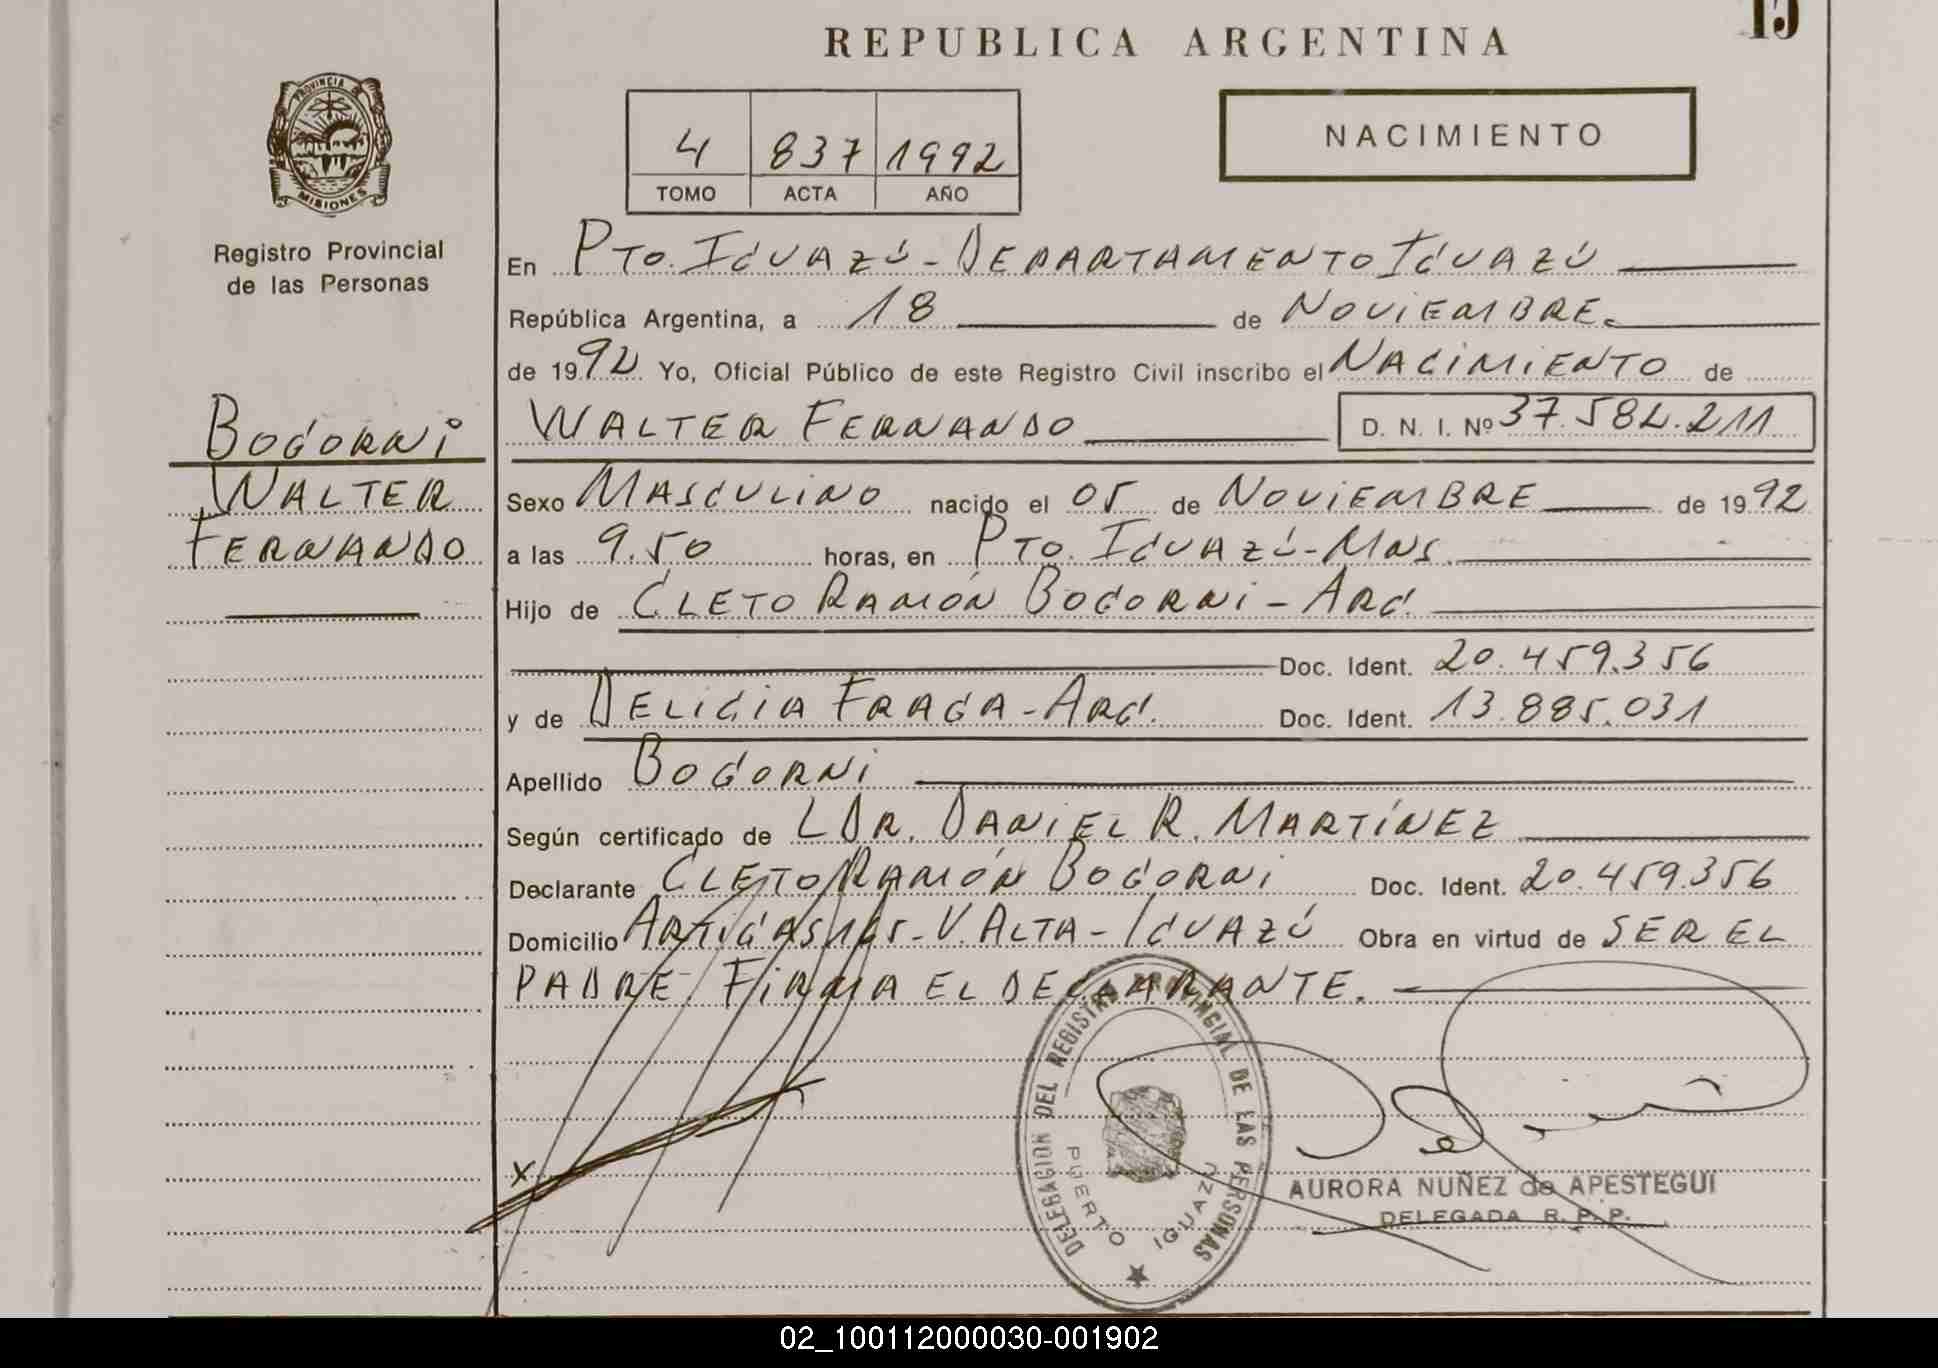 REPUBLICA ARGENTINA
15
PROVINCIA DE
MISIONES
Registro Provincial
de las Personas
4 837 1992
TOMO ACTA AÑO
NACIMIENTO
En PTO. IGUAZÚ - DEPARTAMENTO IGUAZÚ
República Argentina, a 18 de NOVIEMBRE.
de 1992 Yo, Oficial Público de este Registro Civil inscribo el NACIMIENTO de
WALTER FERNANDO D. N. I. Nº 37.582.211
BOGORNI
WALTER
FERNANDO
Sexo MASCULINO nacido el 05 de NOVIEMBRE de 1992
a las 9.50 horas, en PTO. IGUAZÚ - MNS.
Hijo de CLETO RAMÓN BOGORNI - ARG.
Doc. Ident. 20.459.356
y de DELICIA FRAGA - ARG. Doc. Ident. 13.885.031
Apellido BOGORNI
Según certificado de L DR. DANIEL R. MARTÍNEZ
Declarante CLETO RAMÓN BOGORNI Doc. Ident. 20.459.356
Domicilio ARTIGAS 165 - V. ALTA - IGUAZÚ Obra en virtud de SER EL
PADRE FIRMA EL DECLARANTE.
X
DELEGACION DEL REGISTRO PROVINCIAL DE LAS PERSONAS
PUERTO IGUAZU
AURORA NUÑEZ de APESTEGUI
DELEGADA R. P. P.
02_100112000030-001902